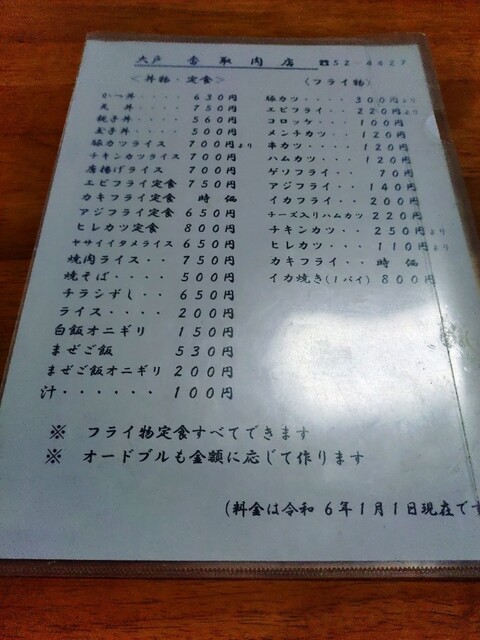 大戸 香取肉店 ☎52-4427
＜丼物・定食＞
かつ丼・・・・630円
天丼・・・・750円
親子丼・・・・560円
玉子丼・・・・500円
豚カツライス 700円より
チキンカツライス 700円
唐揚げライス 700円
エビフライ定食 750円
カキフライ定食 時価
アジフライ定食 650円
ヒレカツ定食 800円
ヤサイイタメライス 650円
焼肉ライス・・750円
焼そば・・・・500円
チラシずし・・650円
ライス・・・・200円
白飯オニギリ 150円
まぜご飯 530円
まぜご飯オニギリ 200円
汁・・・・・・100円
〈フライ物〉
豚カツ・・・・300円より
エビフライ・・220円より
コロッケ・・・100円
メンチカツ・・120円
串カツ・・・・120円
ハムカツ・・・120円
ゲソフライ・・70円
アジフライ・・140円
イカフライ・・200円
チーズ入りハムカツ 220円
チキンカツ・・250円より
ヒレカツ・・・110円より
カキフライ・・時価
イカ焼き(1パイ) 800円
※ フライ物定食すべてできます
※ オードブルも金額に応じて作ります
(料金は令和6年1月1日現在です